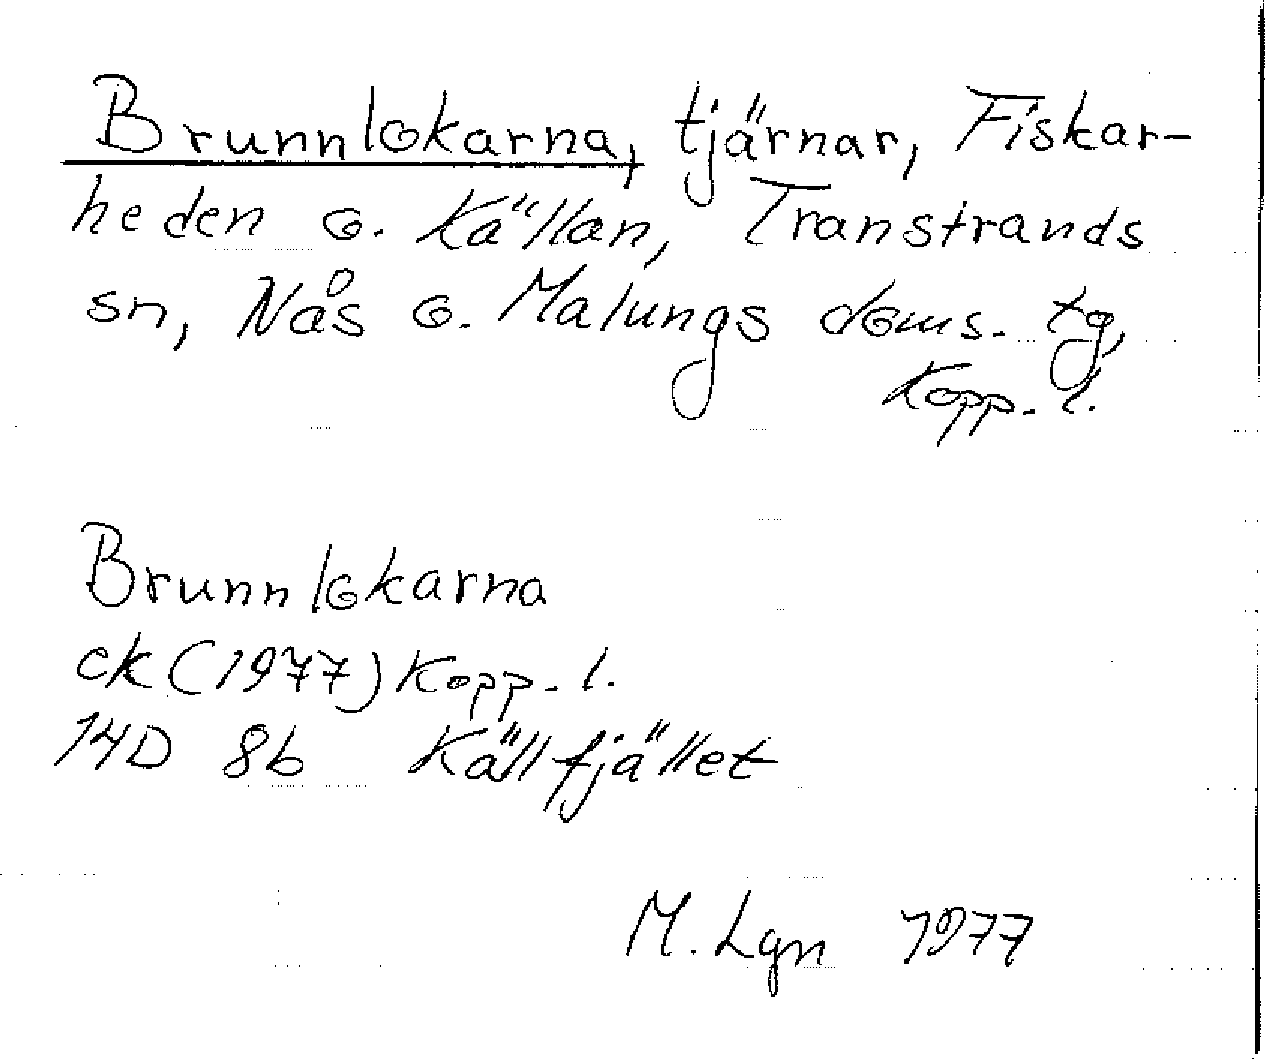 Brunnlokarna, tjärnar, Fiskar-
heden o. Källan, Transtrands
sn, Nås o. Malungs doms. tg,
Kopp. l.
Brunnlokarna
ek (1977) Kopp. l.
14D 8b Källfjället
M. Lgn 1977